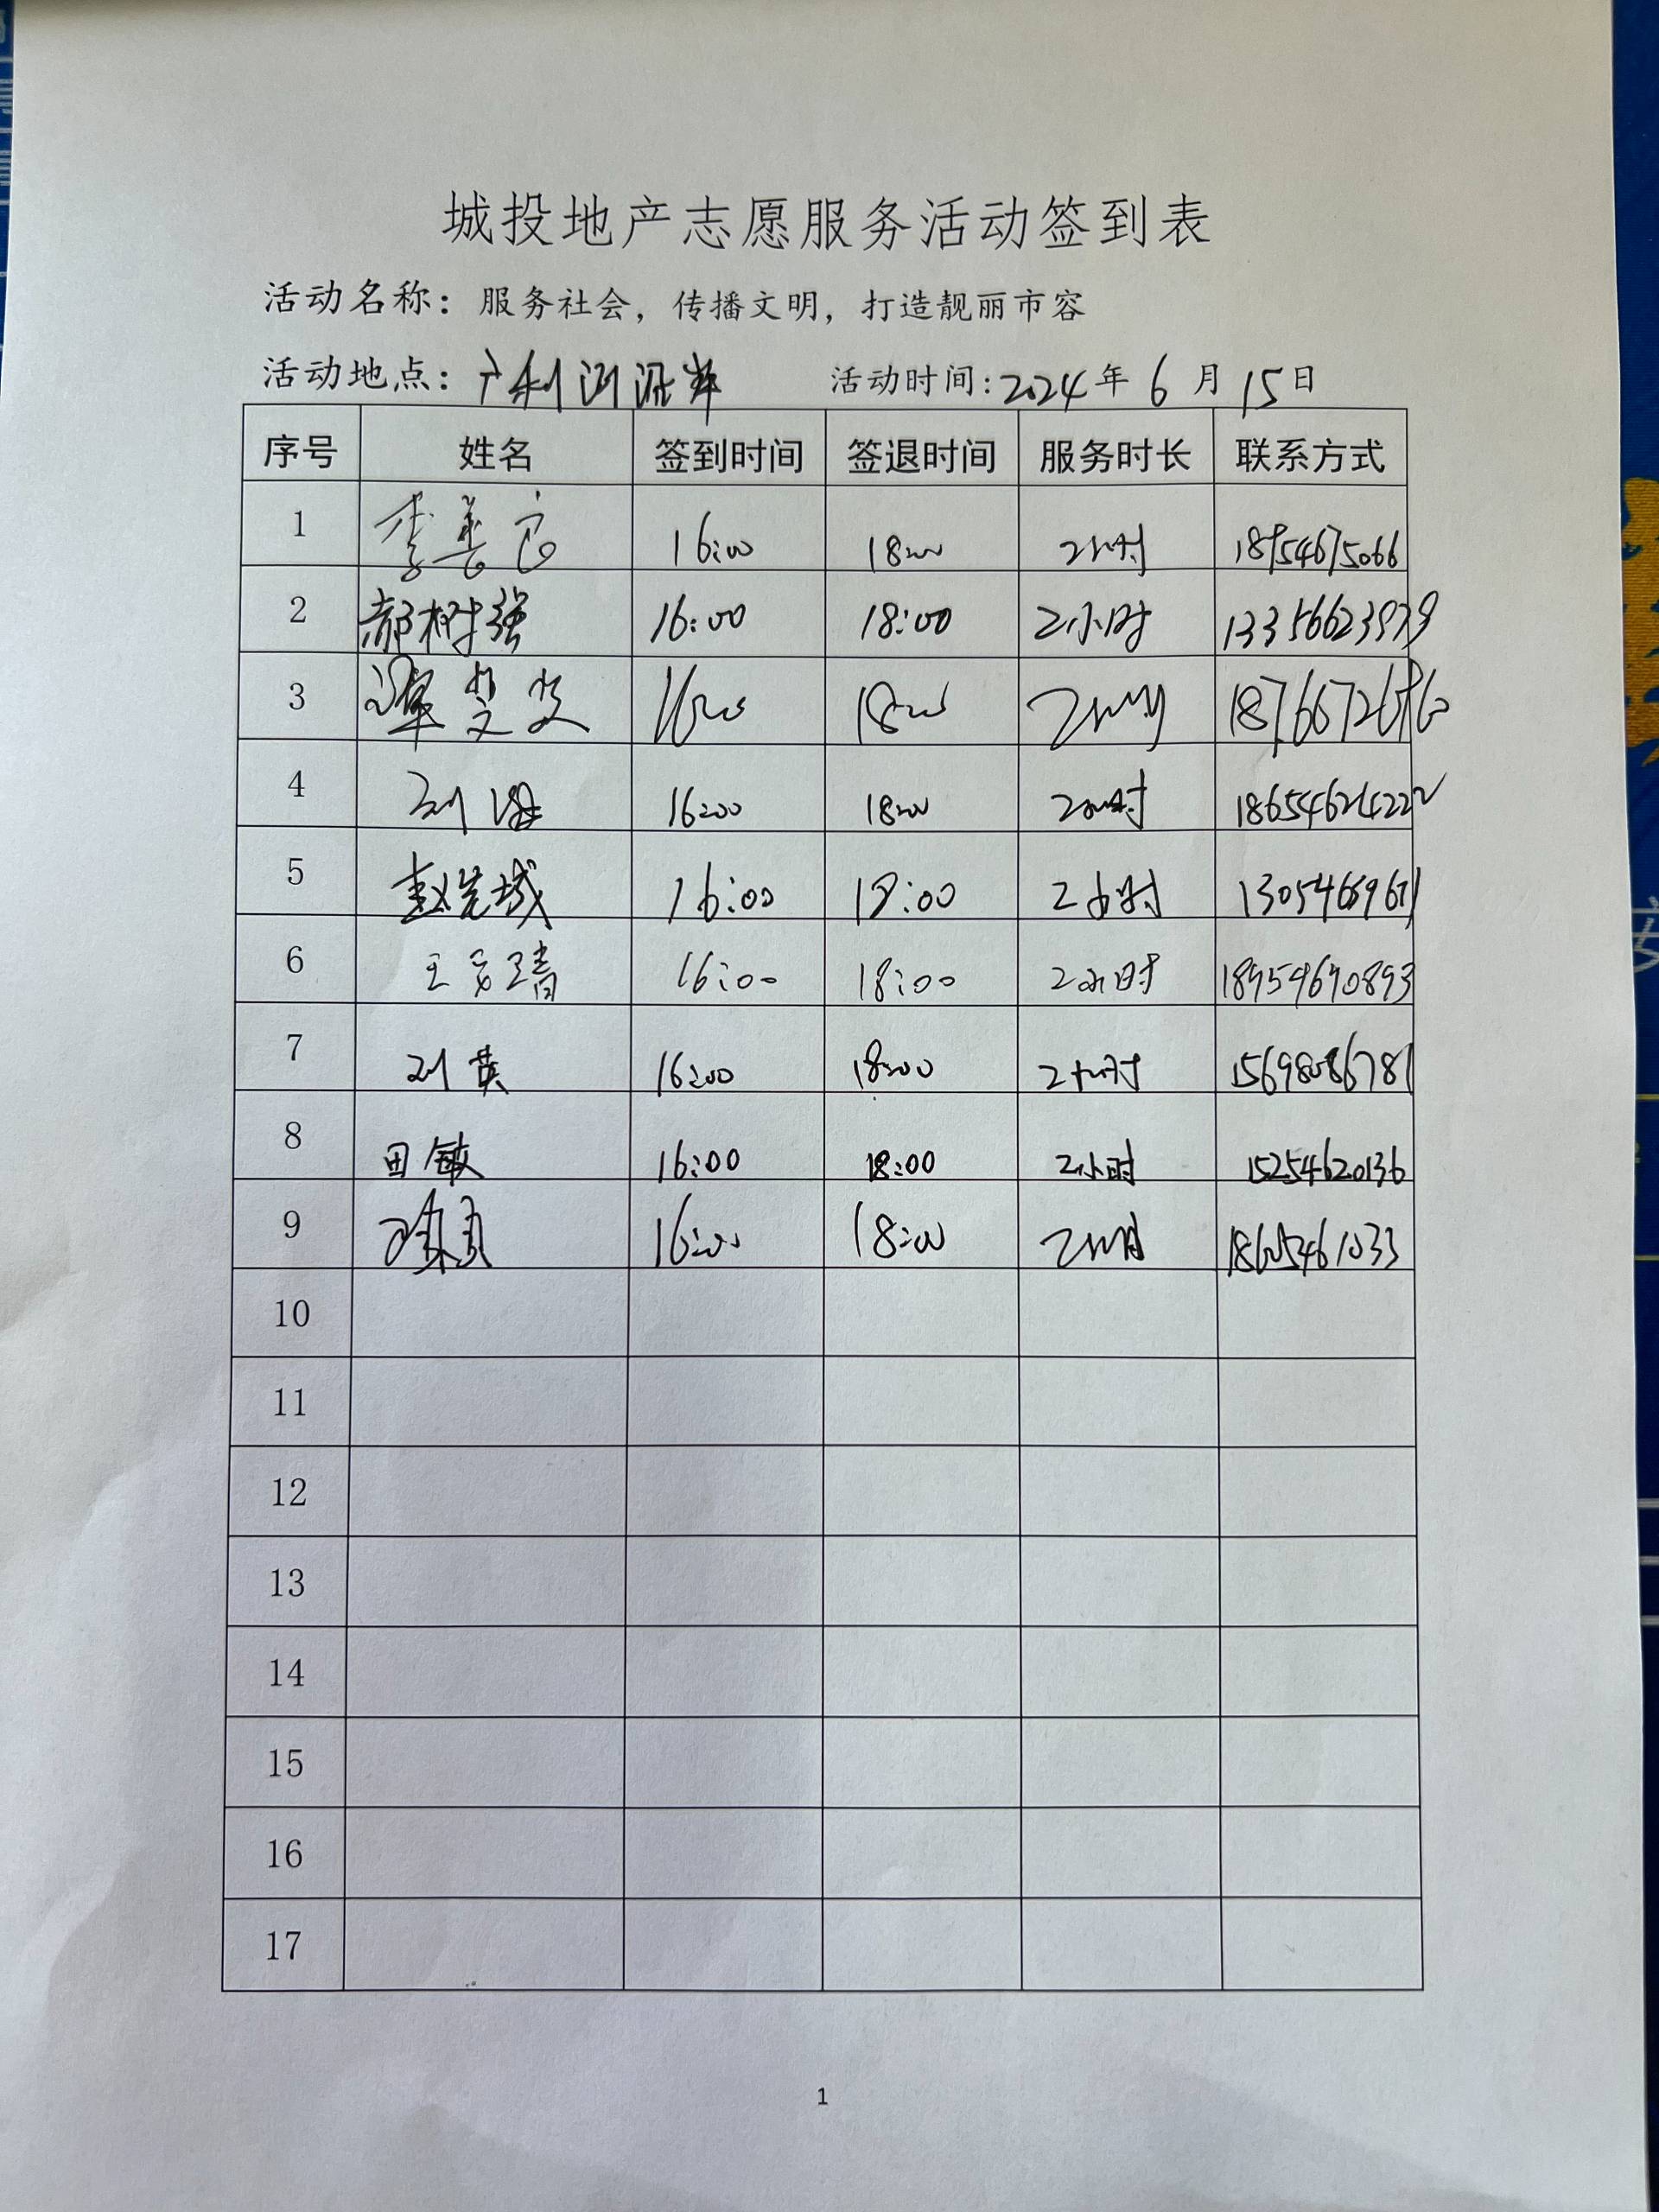 城投地产志愿服务活动签到表
活动名称：服务社会，传播文明，打造靓丽市容
活动地点：广利河沿岸 活动时间：2024年6月15日
序号 姓名 签到时间 签退时间 服务时长 联系方式
1 李善 16:00 18:00 2小时 18954675066
2 郝树强 16:00 18:00 2小时 13356623979
3 16:00 18:00 2小时
4 刘 16:00 18:00 2小时 18654624222
5 赵先城 16:00 18:00 2小时
6 王 16:00 18:00 2小时 18954690893
7 刘英 16:00 18:00 2小时 15698086781
8 田敏 16:00 18:00 2小时 15254620136
9 16:00 18:00 2小时 18605461033
10
11
12
13
14
15
16
17
1